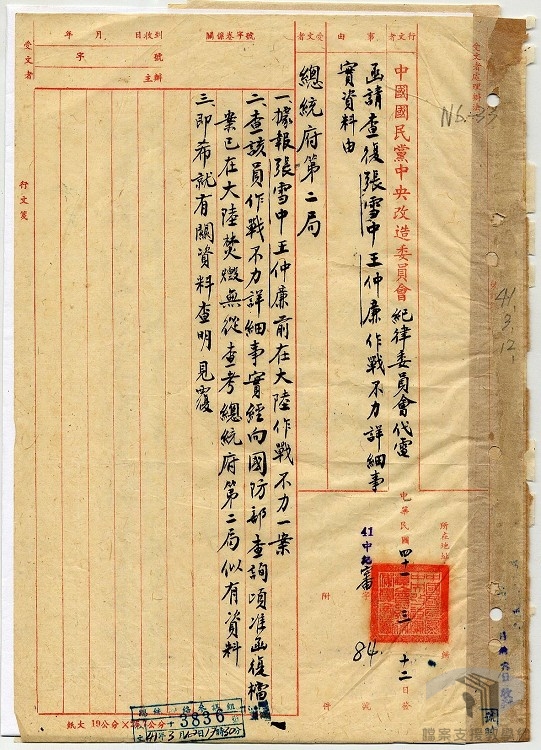 中國國民黨中央改造委員會紀律委員會代電
事由
行文者
受文者
函請查復張雪中王仲廉作戰不力詳細事
實資料由
中華民國四十一 三 十二日發
41中紀審字
84號
附件
總統府第二局
一、據報張雪中王仲廉前在大陸作戰不力一案
二、查該員作戰不力詳細事實經向國防部查詢頃准函復檔
案已在大陸焚燬無從查考總統府第二局似有資料
三、即希就有關資料查明見覆
關係卷字號
年 月 日收到
字 號
主辦
受文者
行文箋
N6-33
41.
3.
12
3836
紙大19公分×
檔案支援教學網